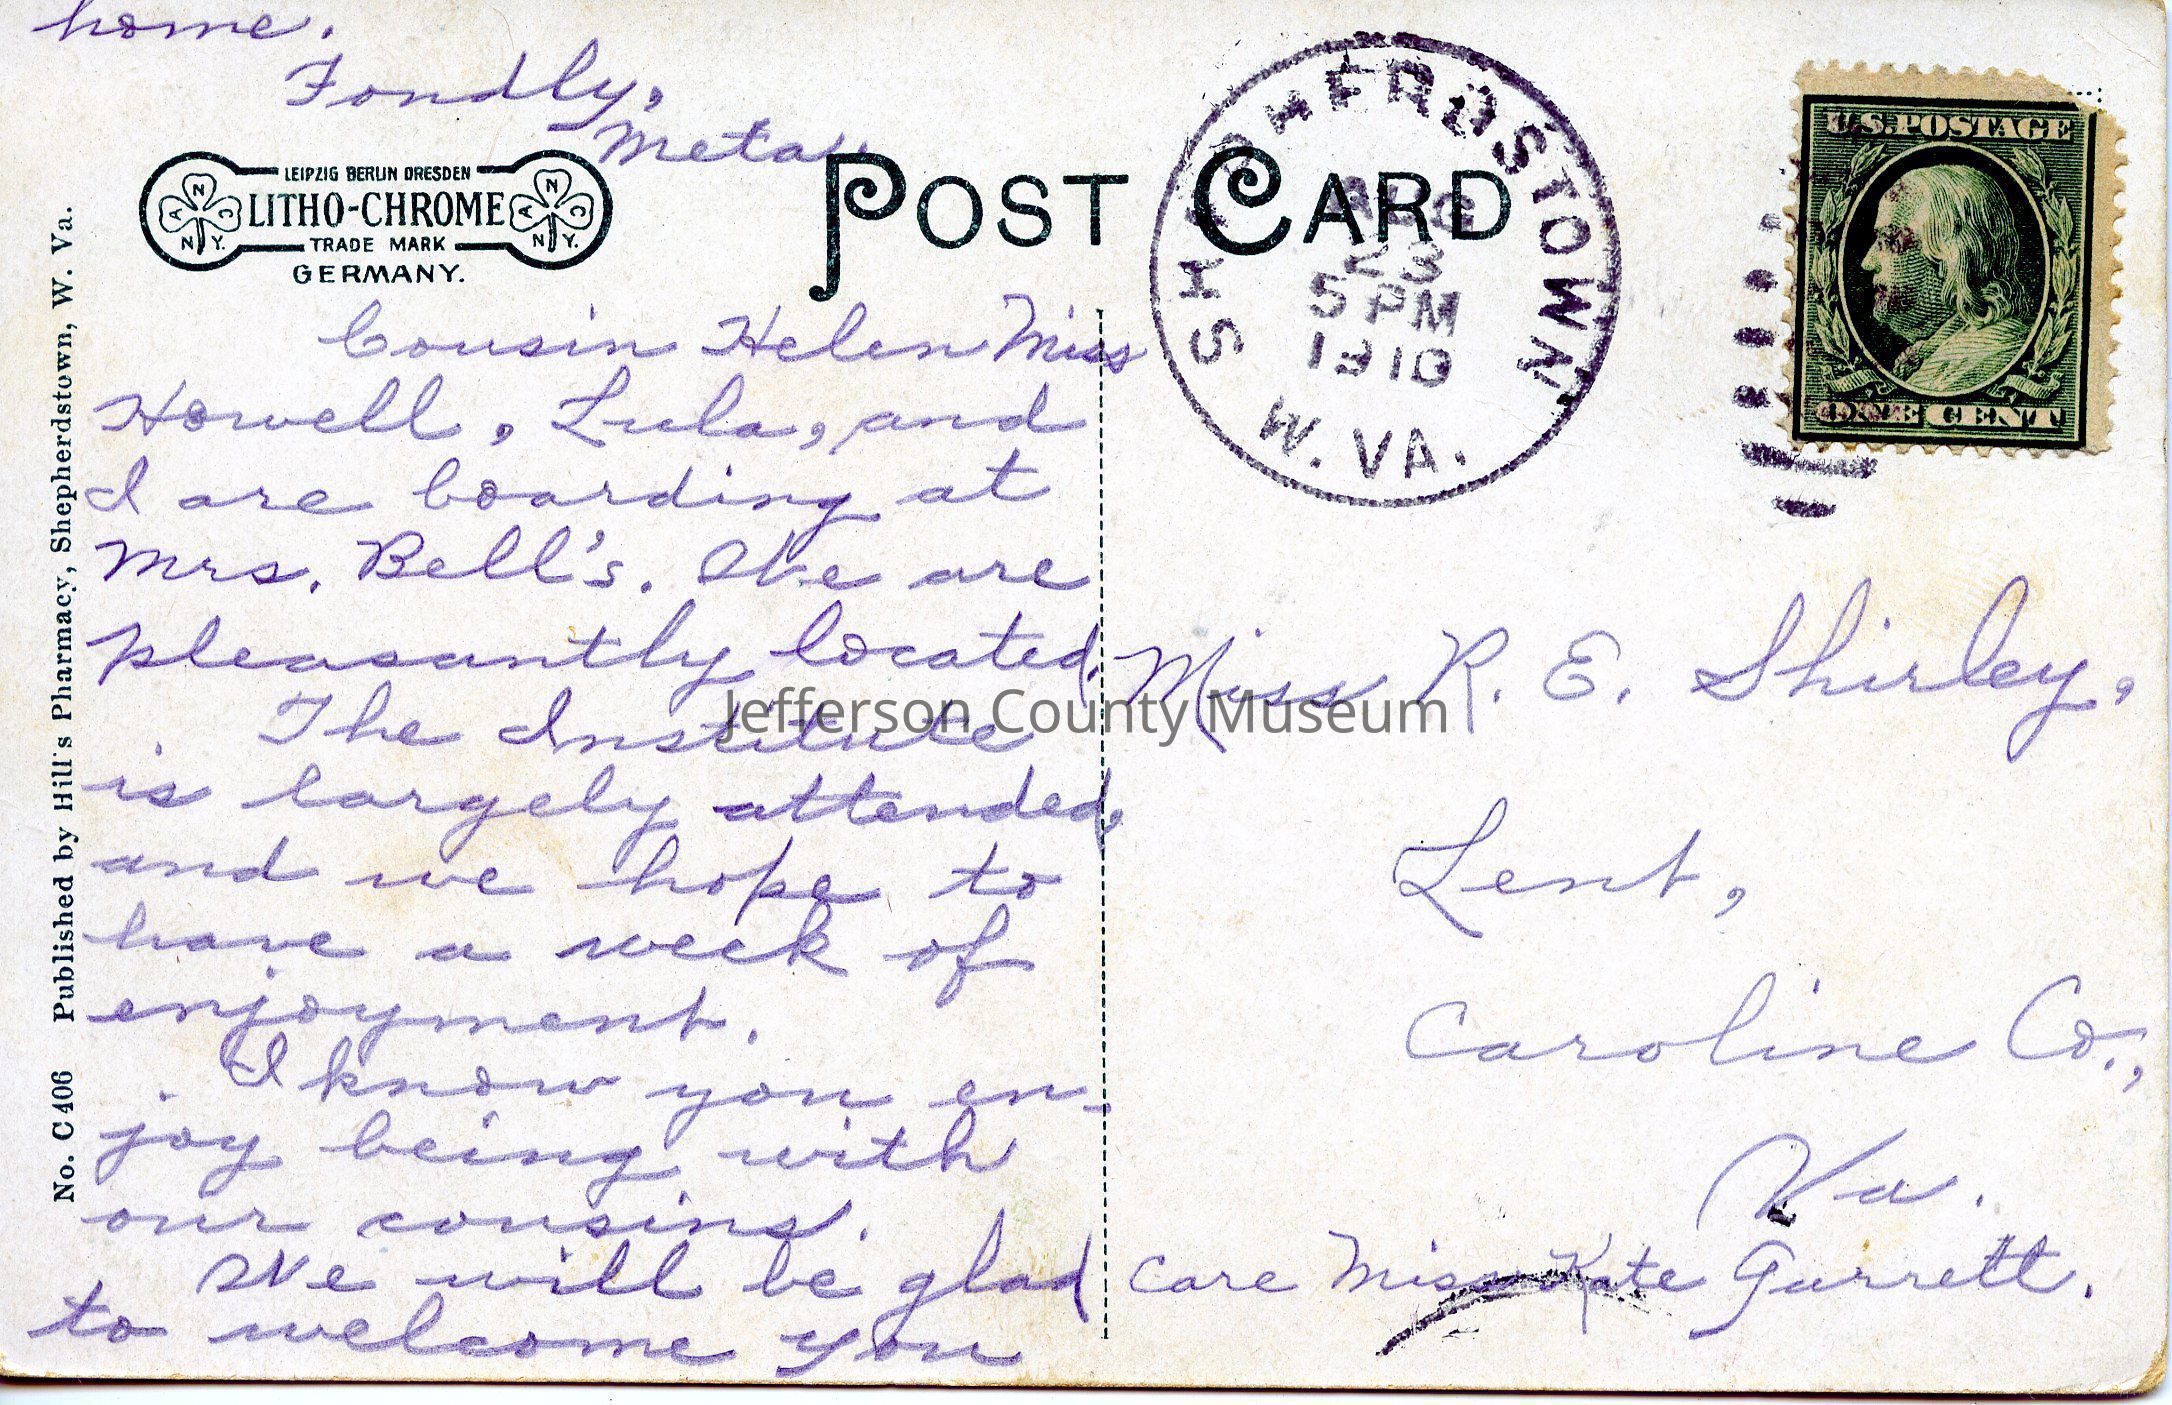 home.
Fondly,
Meta.
LEIPZIG BERLIN DRESDEN
LITHO-CHROME
TRADE MARK
GERMANY.
N
A C
N Y.
N
A C
N Y.
POST CARD
SHEPHERDSTOWN
AUG
23
5 PM
1910
W. VA.
U.S. POSTAGE
ONE CENT
No. C 406 Published by Hill's Pharmacy, Shepherdstown, W. Va.
Cousin Helen Miss
Howell, Lula, and
I are boarding at
Mrs. Bell's. We are
pleasantly located.
The Institute
is largely attended,
and we hope to
have a week of
enjoyment.
I know you en-
joy being with
our cousins.
We will be glad
to welcome you
Miss R. E. Shirley,
Lent,
Caroline Co.,
Va.
Care Miss Kate Garrett.
Jefferson County Museum